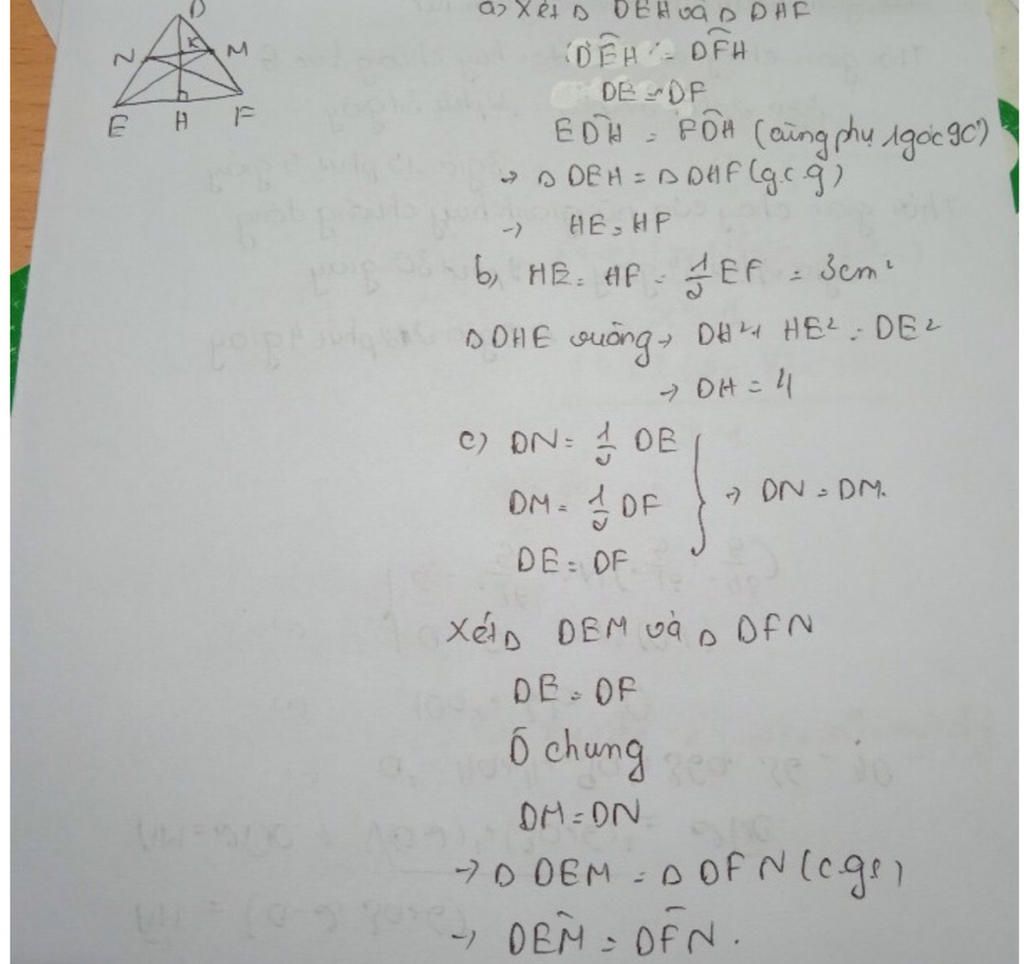 D
N K M
E H F
a) Xét Δ DEH và Δ DHF
DÊH = DF̂H
DE = DF
ED̂H = FD̂H (cùng phụ 1 góc 90°)
→ Δ DEH = Δ DHF (g.c.g)
→ HE = HF
b, HE = HF = 1/2 EF = 3cm²
Δ DHE vuông → DH² + HE² = DE²
→ DH = 4
c) DN = 1/2 DE
DM = 1/2 DF → DN = DM.
DE = DF
Xét Δ DEM và Δ DFN
DE = DF
D̂ chung
DM = DN
→ Δ DEM = Δ DFN (c.g.c)
→ DÊM = DF̂N.